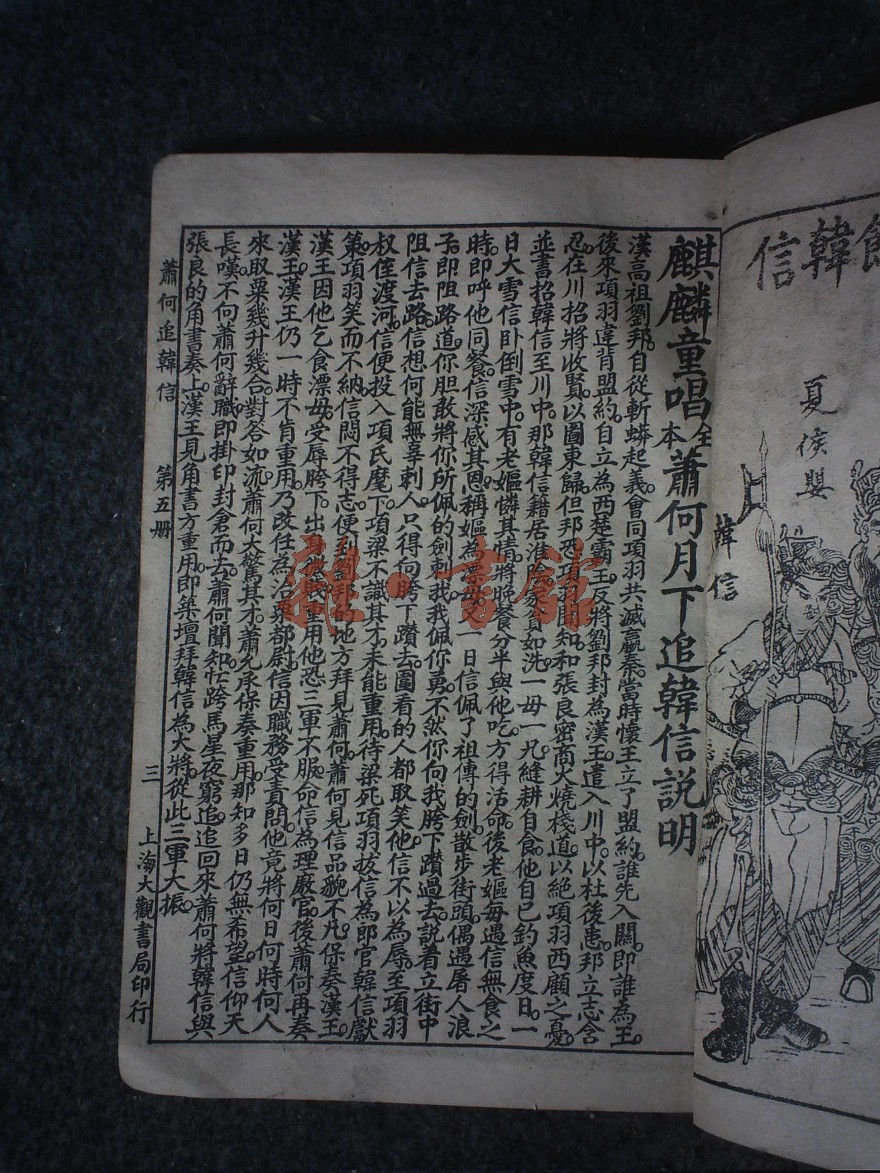 館韓信
夏侯嬰
韓信
麒麟童唱全本蕭何月下追韓信說明
漢高祖劉邦自從斬蟒起義會同項羽共滅嬴秦當時懷王立了盟約誰先入關即誰為王
後來項羽違背盟約自立為西楚霸王反將劉邦封為漢王遣入川中以杜後患邦立志含
忍在川招將收賢以圖東歸但邦恐項羽聞知和張良密商火燒棧道以絕項羽西顧之憂
並書招韓信至川中那韓信籍居淮陰家貧如洗一毋一兄縫耕自食他自己釣魚度日一
日大雪信卧倒雪中有老嫗憐其情將晚餐分半與他吃方得活命後老嫗每遇信無食之
時即呼他同餐信深感其恩稱嫗為漂毋一日信佩了祖傳的劍散步街頭偶遇屠人浪
子即阻路道你胆敢將你所佩的劍刺我我佩你勇不然你向我胯下躦過去說着立街中
阻信去路信想何能無喜刺人只得向胯下躦去圍看的人都取笑他信不以為辱至項羽
叔侄渡河信便投入項氏麾下項梁不識其才未能重用待梁死項羽拔信為郎官韓信獻
策項羽笑而不納信悶不得志便到劉邦的地方拜見蕭何蕭何見信品貌不凡保奏漢王
漢王因他乞食漂毋受辱胯下出身微賤重用他恐三軍不服命信為理廠官後蕭何再奏
漢王漢王仍一時不肯重用乃改任為治粟都尉信因職務受責問他竟將何日何時何人
來取粟幾升幾合對答如流蕭何大驚其才蕭允承保奏重用那知多日仍無希望信仰天
長嘆不向蕭何辭職即掛印封倉而去蕭何聞知忙跨馬星夜窮追追回來蕭何將韓信與
張良的角書奏上漢王見角書方重用即築壇拜韓信為大將從此三軍大振
蕭何追韓信 第五册 三 上海大觀書局印行
龍·書館